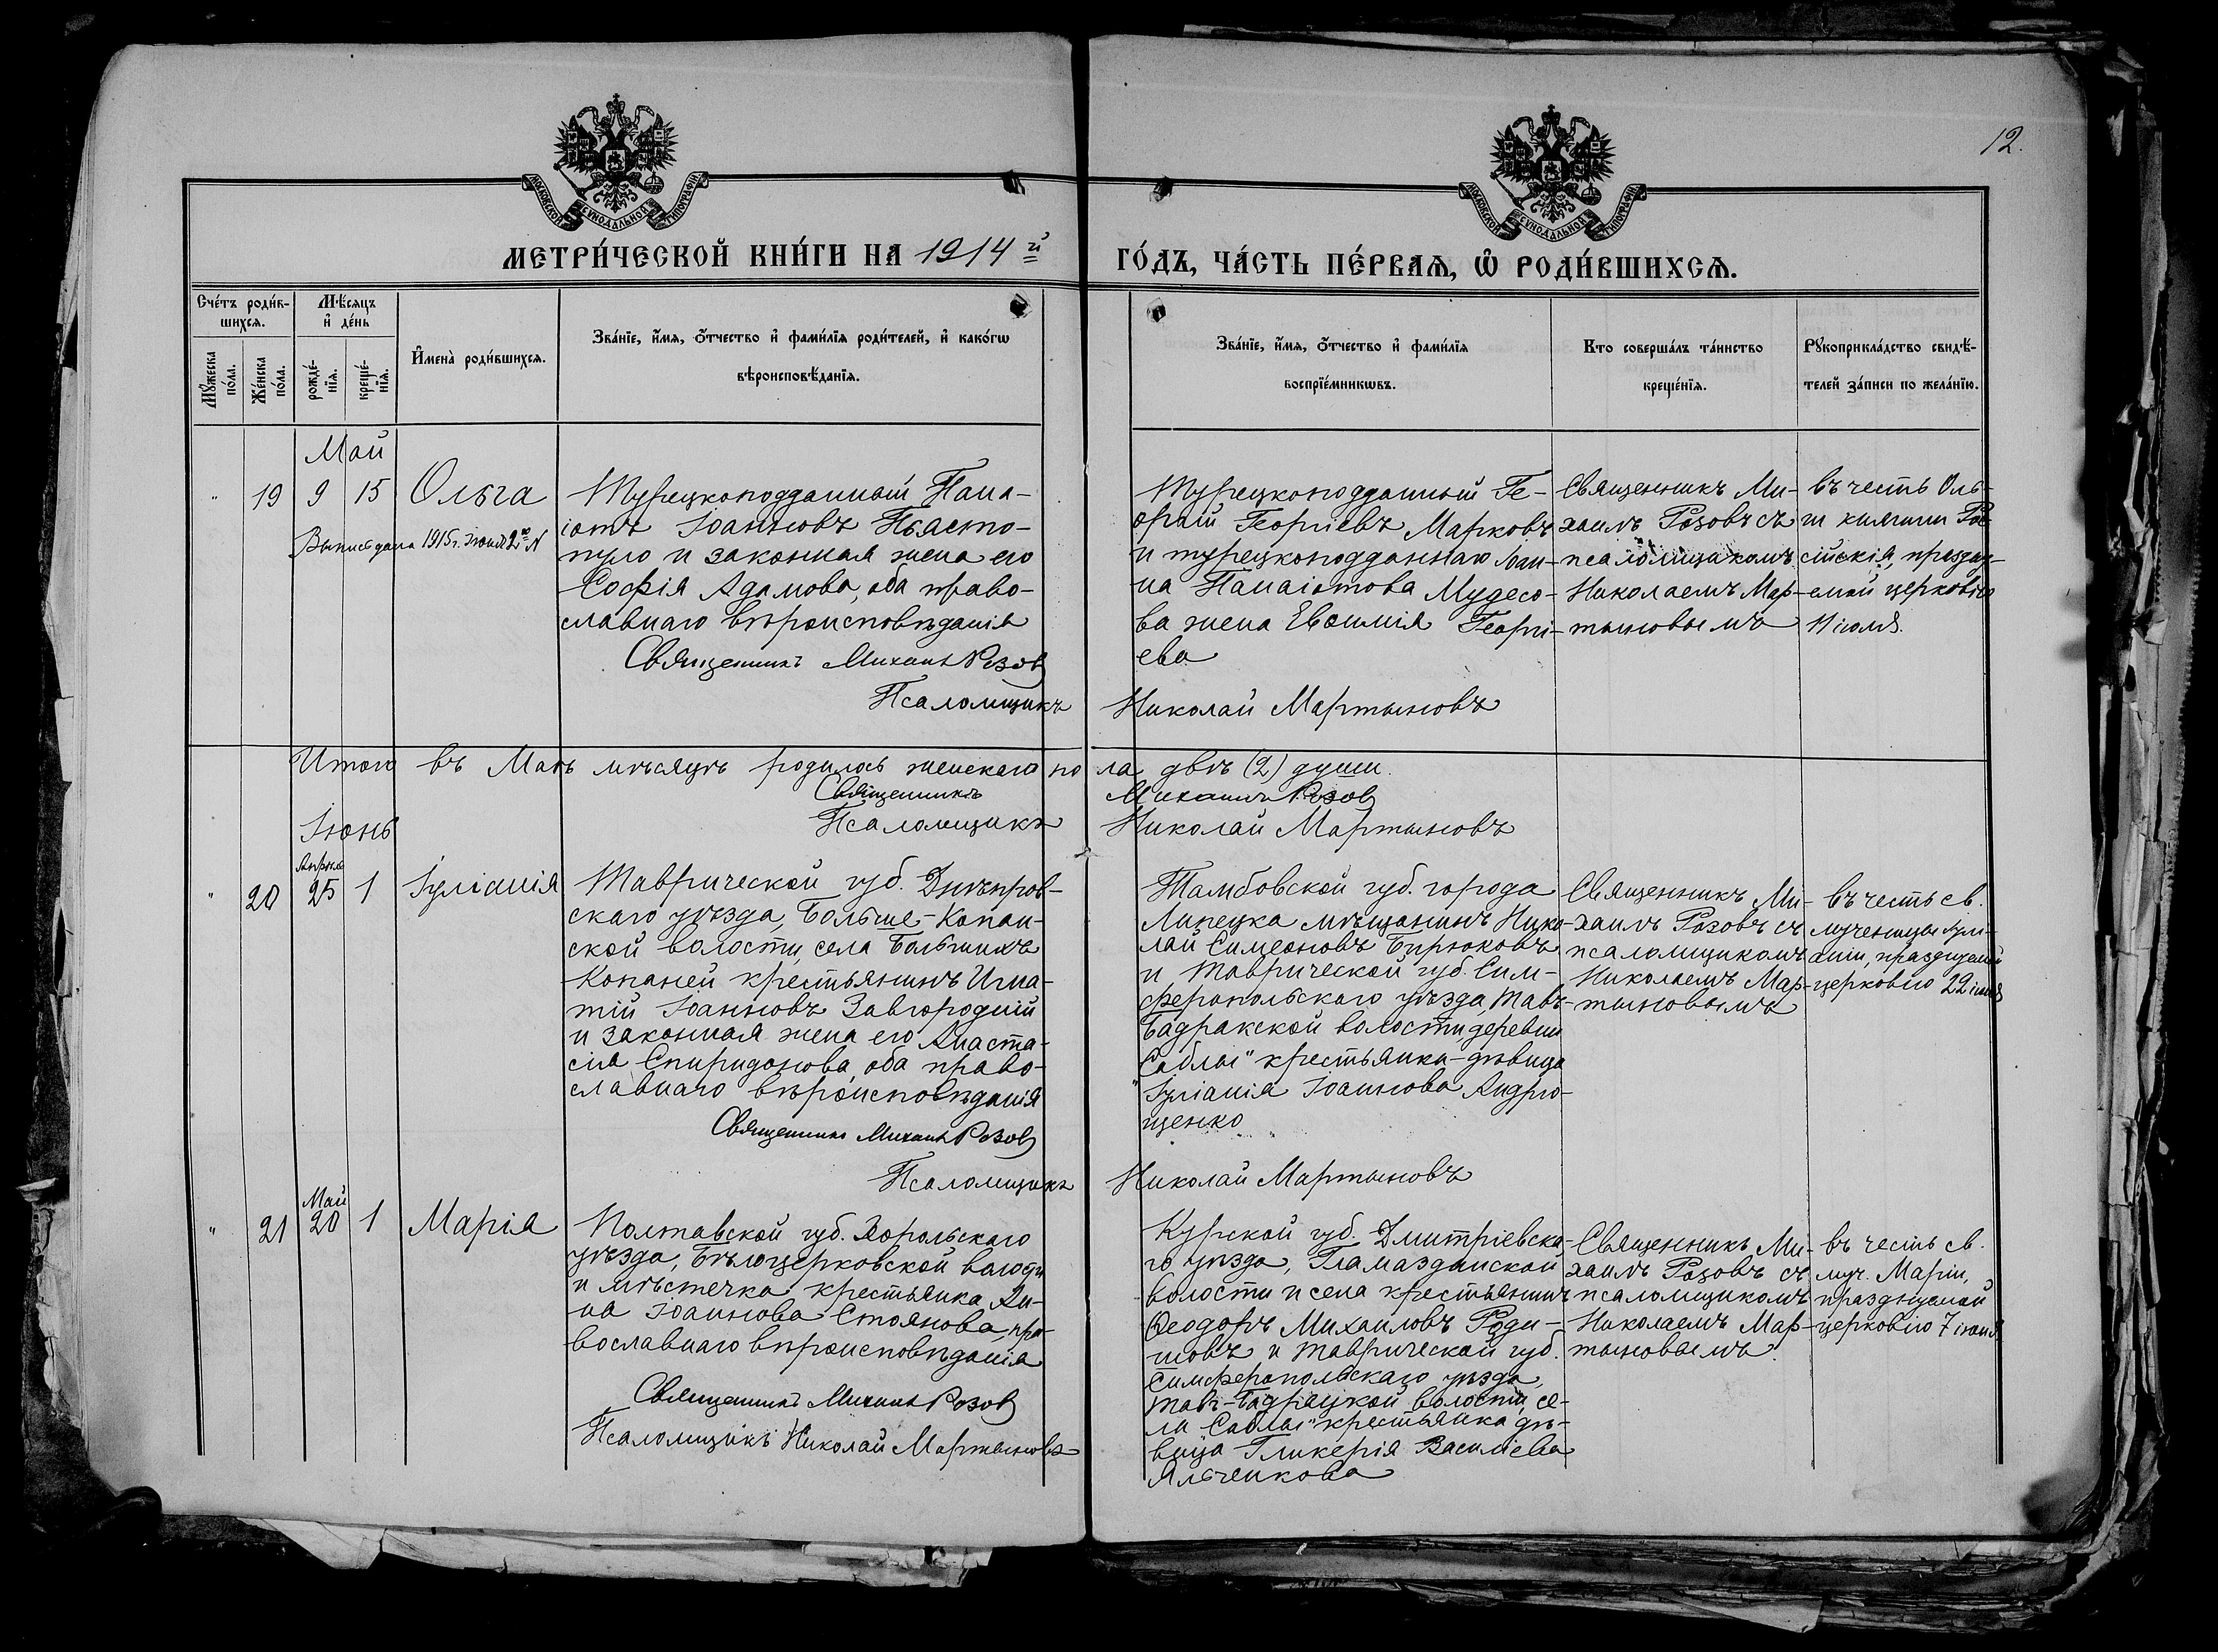 12.
МОСКОВСКОЙ СѴНОДАЛЬНОЙ ТИПОГРАФІИ
МОСКОВСКОЙ СѴНОДАЛЬНОЙ ТИПОГРАФІИ
МЕТРИ́ЧЕСКОЙ КНИ́ГИ НА 1914 й
ГО́ДЪ, ЧА́СТЬ ПЕ́РВАѦ, Ѡ҆ РОДИ́ВШИХСѦ.
Сче́тъ роди́в-
шихсѧ.
Мꙋ́жеска
по́ла.
Же́нска
по́ла.
Мѣ́сѧцъ
и҆ де́нь
рожде́-
нїѧ.
креще́-
нїѧ.
И҆мена̀ роди́вшихсѧ.
Зва́нїе, и҆́мѧ, ѻ҆́тчество и҆ фами́лїѧ роди́телей, и҆ како́гѡ
вѣроисповѣ́данїѧ.
Зва́нїе, и҆́мѧ, ѻ҆́тчество и҆ фами́лїѧ
воспрїе́мникѡвъ.
Кто соверша́лъ та́инство
креще́нїѧ.
Рꙋкоприкла́дство свидѣ́-
телей за́писи по жела́нїю.
Май
" 19 9 15 Ольга
Выпись дана 1915 г. Іюня 2го №
Турецкоподданный Пана-
іотъ Іоанновъ Псасто-
пуло и законная жена его
Софія Адамова, оба право-
славнаго вѣроисповѣданія
Священникъ Михаилъ Розовъ
Псаломщикъ Николай Мартыновъ
Турецкоподданный Ге-
оргій Георгіевъ Марковъ
и турецкоподданнаго Іоан-
на Панаіотова Мудесо-
ва жена Евѳимія Георгі-
ева
Священникъ Ми-
хаилъ Розовъ съ
псаломщикомъ
Николаемъ Мар-
тыновымъ
въ честь Оль-
ги княгини Рос-
сійскія, празднуе-
емой церковію
11 іюля.
Итого въ Маѣ мѣсяцѣ родилось женскаго пола двѣ (2) души.
Священникъ Михаилъ Розовъ
Псаломщикъ Николай Мартыновъ
Іюнь
Апрѣля
" 20 25 1 Іуліанія
Таврической губ. Днѣпров-
скаго уѣзда, Больше-Копан-
ской волости, села Большихъ
Копаней крестьянинъ Игна-
тій Іоанновъ Завгородній
и законная жена его Анаста-
сія Спиридонова, оба право-
славнаго вѣроисповѣданія
Священникъ Михаилъ Розовъ
Псаломщикъ Николай Мартыновъ
Тамбовской губ. города
Липецка мѣщанинъ Нико-
лай Симеоновъ Бирюковъ
и Таврической губ. Сим-
феропольскаго уѣзда, Тавъ-
Бадракской волости деревни
"Саблы" крестьянка-дѣвица
Іуліанія Іоаннова Андрю-
щенко
Священникъ Ми-
хаилъ Розовъ съ
псаломщикомъ
Николаемъ Мар-
тыновымъ
въ честь св.
мученицы Іулі-
аніи, празднуемой
церковію 22 іюня
Май
" 21 20 1 Марія
Полтавской губ. Хорольскаго
уѣзда, Бѣлоцерковской волости
и мѣстечка крестьянка Ан-
на Іоаннова Стоянова, пра-
вославнаго вѣроисповѣданія
Священникъ Михаилъ Розовъ
Псаломщикъ Николай Мартыновъ
Курской губ. Дмитріевска-
го уѣзда, Гламаздинской
волости и села крестьянинъ
Ѳеодоръ Михаиловъ Роди-
новъ и Таврической губ.
Симферопольскаго уѣзда,
Тавъ-Бадрацкой волости, се-
ла "Саблы" крестьянка дѣ-
вица Гликерія Василіева
Яльченкова
Священникъ Ми-
хаилъ Розовъ съ
псаломщикомъ
Николаемъ Мар-
тыновымъ
въ честь св.
муч. Маріи,
празднуемой
церковію 7 іюня